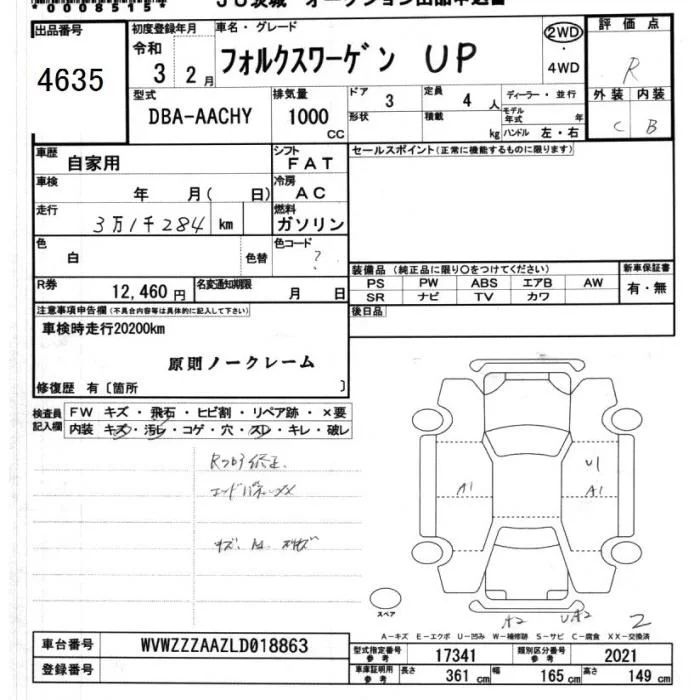 *0008515*
JU茨城 オークション出品申込書
出品番号 4635
初度登録年月 令和 3 2月
車名・グレード フォルクスワーゲン UP
2WD・4WD
評価点 R
型式 DBA-AACHY
排気量 1000 CC
ドア 3
定員 4 人
形状
積載 kg
ディーラー・並行
モデル年式 年
ハンドル 左・右
外装 C
内装 B
車歴 自家用
シフト FAT
セールスポイント(正常に機能するものに限ります)
車検 年 月( 日)
冷房 AC
走行 3万1千284 km
燃料 ガソリン
色 白 色替
色コード ?
装備品 (純正品に限り〇をつけてください)
新車保証書 有・無
PS PW ABS エアB AW
SR ナビ TV カワ
R券 12,460 円
名変通知期限 月 日
後日品
注意事項申告欄(不具合内容等は具体的に記入して下さい)
車検時走行20200km
原則ノークレーム
修復歴 有〔箇所 〕
検査員記入欄
FW キズ・飛石・ヒビ割・リペア跡・×要
内装 キズ・汚レ・コゲ・穴・スレ・キレ・破レ
エンドパネルXX
U1
A1
A1
スペア
A2
UA2
2
A-キズ E-エクボ U-凹み W-補修跡 S-サビ C-腐食 XX-交換済
車台番号 WVWZZZAAZLD018863
登録番号
型式指定番号 参考 17341
類別区分番号 参考 2021
車庫証明用 参考 長さ 361 cm 幅 165 cm 高さ 149 cm